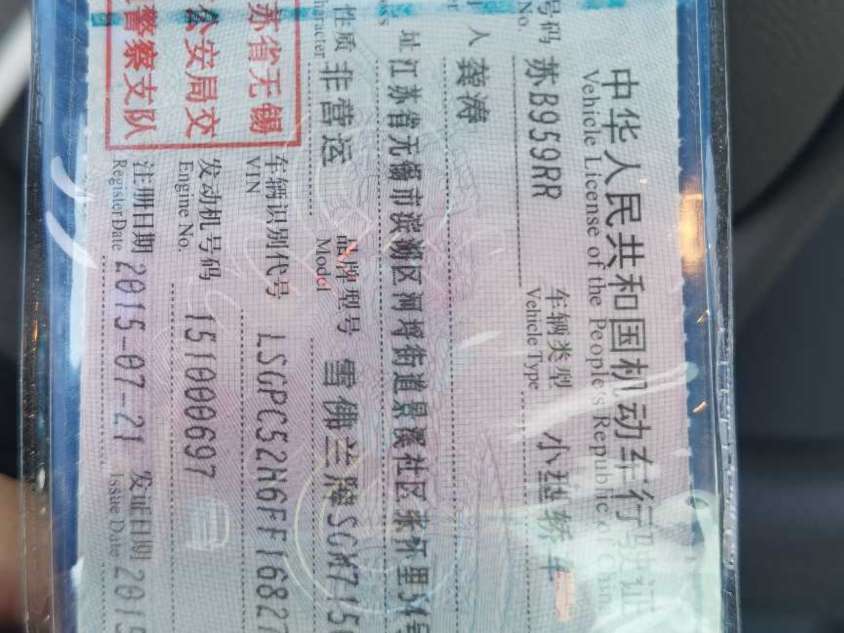 中华人民共和国机动车行驶证
Vehicle License of the People's Republic of China
号码 苏B959RR 车辆类型 小型轿车
No. Vehicle Type
人 龚涛
址 江苏省无锡市滨湖区河埒街道景溪社区张怀里54号
性质 非营运 品牌型号 雪佛兰牌SGM715
Character Model
苏省无锡
公安局交
警察支队
车辆识别代号 LSGPC52H6FF16827
VIN
发动机号码 151000697
Engine No.
注册日期 2015-07-21 发证日期 2015
Register Date Issue Date